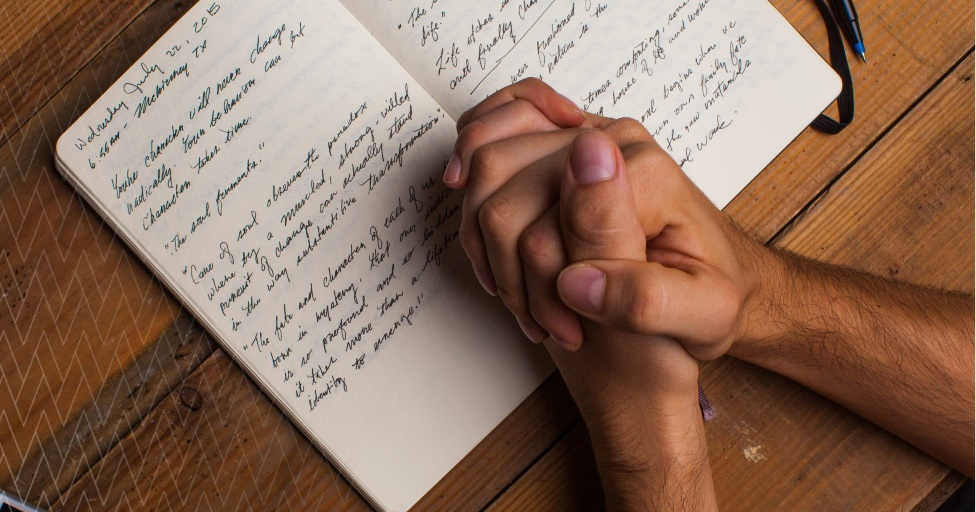 Wednesday July 22 2015
6:46am - McKinney TX
Your character will never change
radically. Your behavior can but
character takes time.
"The soul ferments."
"Care of soul observes the paradox
whereby a muscled, strong-willed
pursuit of change can actually stand
in the way substantive transformation"
"The fate and character of each of us
born in mystery, that our
is so profound and so hidden
it takes more than a lifetime
identity to emerge."
"The
life."
Life etches
and finally
was fashioned
nature is the
comforting,
house of life and
soul begins when we
own family fate
the raw materials
soul work.